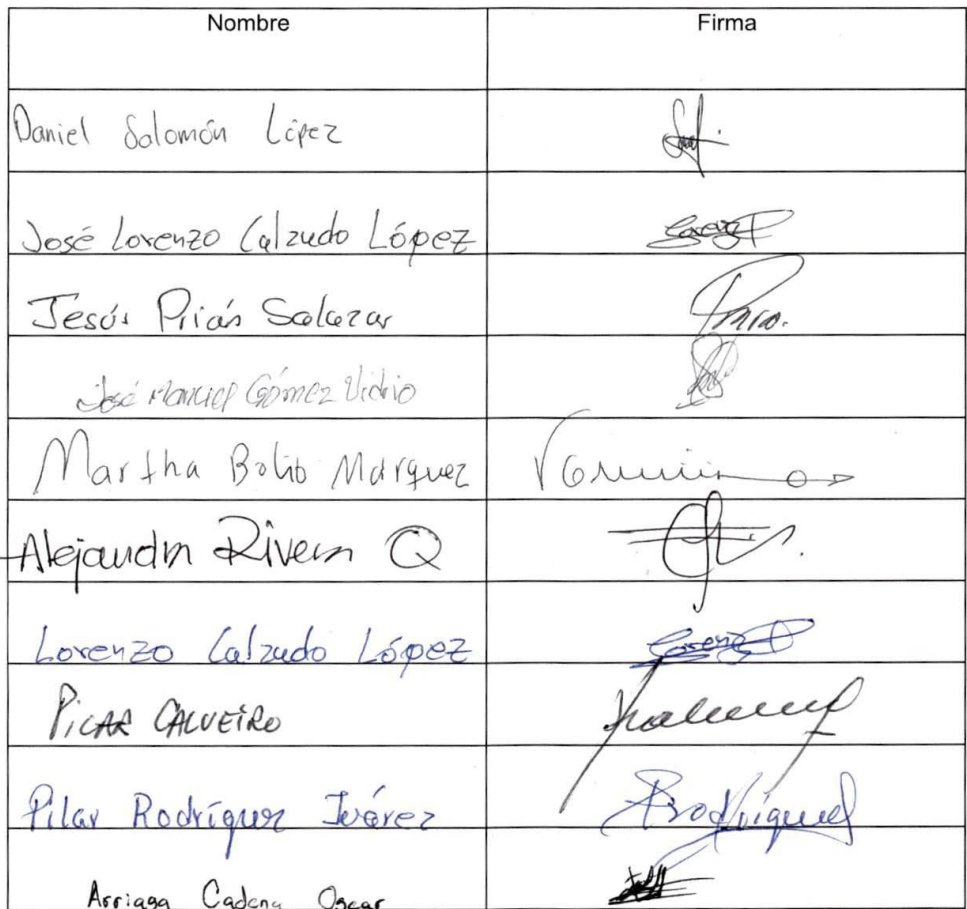 Nombre Firma
Daniel Salomón López
José Lorenzo Calzudo López Lorenzo
Jesús Prián Salazar
José Manuel Gómez Vidrio
Martha Bolio Márquez
Alejandra Rivera Q
Lorenzo Calzudo López Lorenzo
PILAR CALVEIRO
Pilar Rodríguez Juárez PRodríguez
Arriaga Cadena Oscar